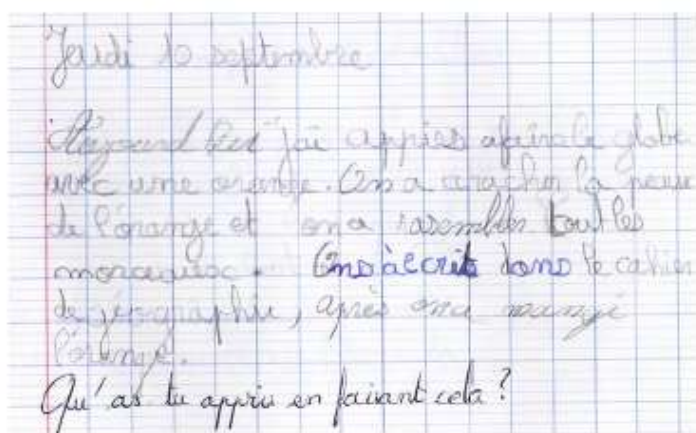 Jeudi 10 septembre
Aujourd'hui j'ai appris afaire le globe
avec une orange. On a aracher la peau
de l'orange et on a rasembler tout les
morceaux. On a écrit dans le cahier
de géographie, après on a mangé
l'orange.
Qu'as tu appris en faisant cela ?